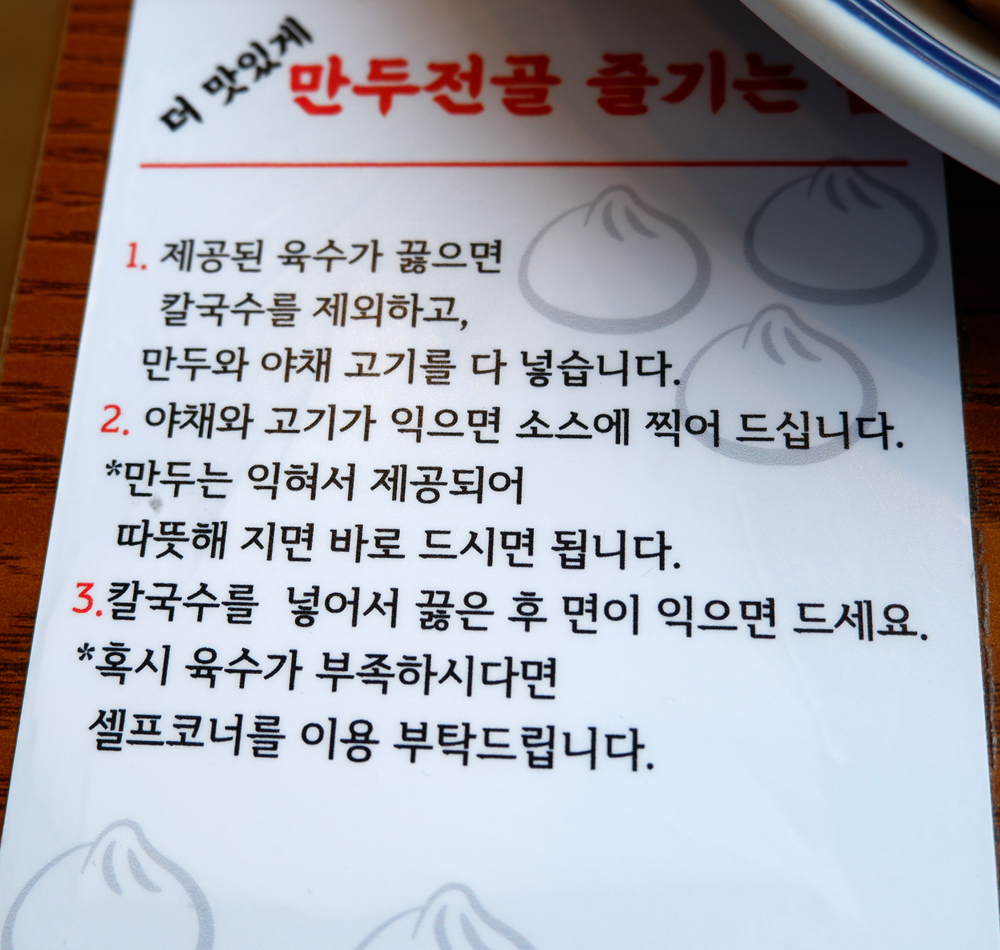 더 맛있게
만두전골 즐기는
1. 제공된 육수가 끓으면
칼국수를 제외하고,
만두와 야채 고기를 다 넣습니다.
2. 야채와 고기가 익으면 소스에 찍어 드십니다.
*만두는 익혀서 제공되어
따뜻해 지면 바로 드시면 됩니다.
3.칼국수를 넣어서 끓은 후 면이 익으면 드세요.
*혹시 육수가 부족하시다면
셀프코너를 이용 부탁드립니다.